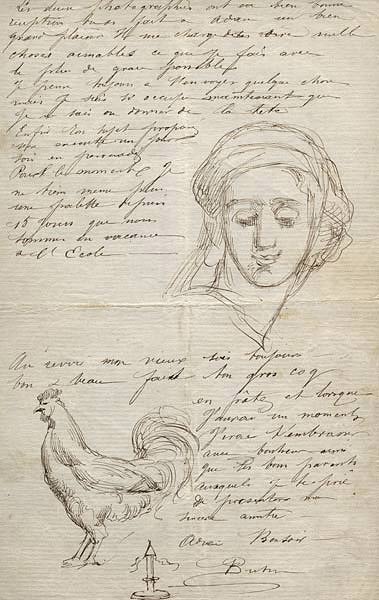 Les deux photographies ont eu bien bonne
reception nous fait à Adam un bien
grand plaisir Il me charge de dire mille
choses aimables ce que je fais avec
le plus de grace possible
Je pense toujours à t'envoyer quelque chose
mais je suis si occupé maintenant que
Je ne sais où donner de la tete
Enfin
execute un jour
toi en
Pour le moment je
ne tiens meme plus
une palette depuis
15 jours que nous
sommes en vacance
à l'Ecole
Au revoir mon vieux sois toujours
bon & beau fais ton gros coq
en et lorsque
J'aurai un moment
J'irai t'embrasser
avec bonheur ainsi
que tes bons parents
auxquels je te prie
de presenter ma
sincere amitié
Adieu Bonsoir